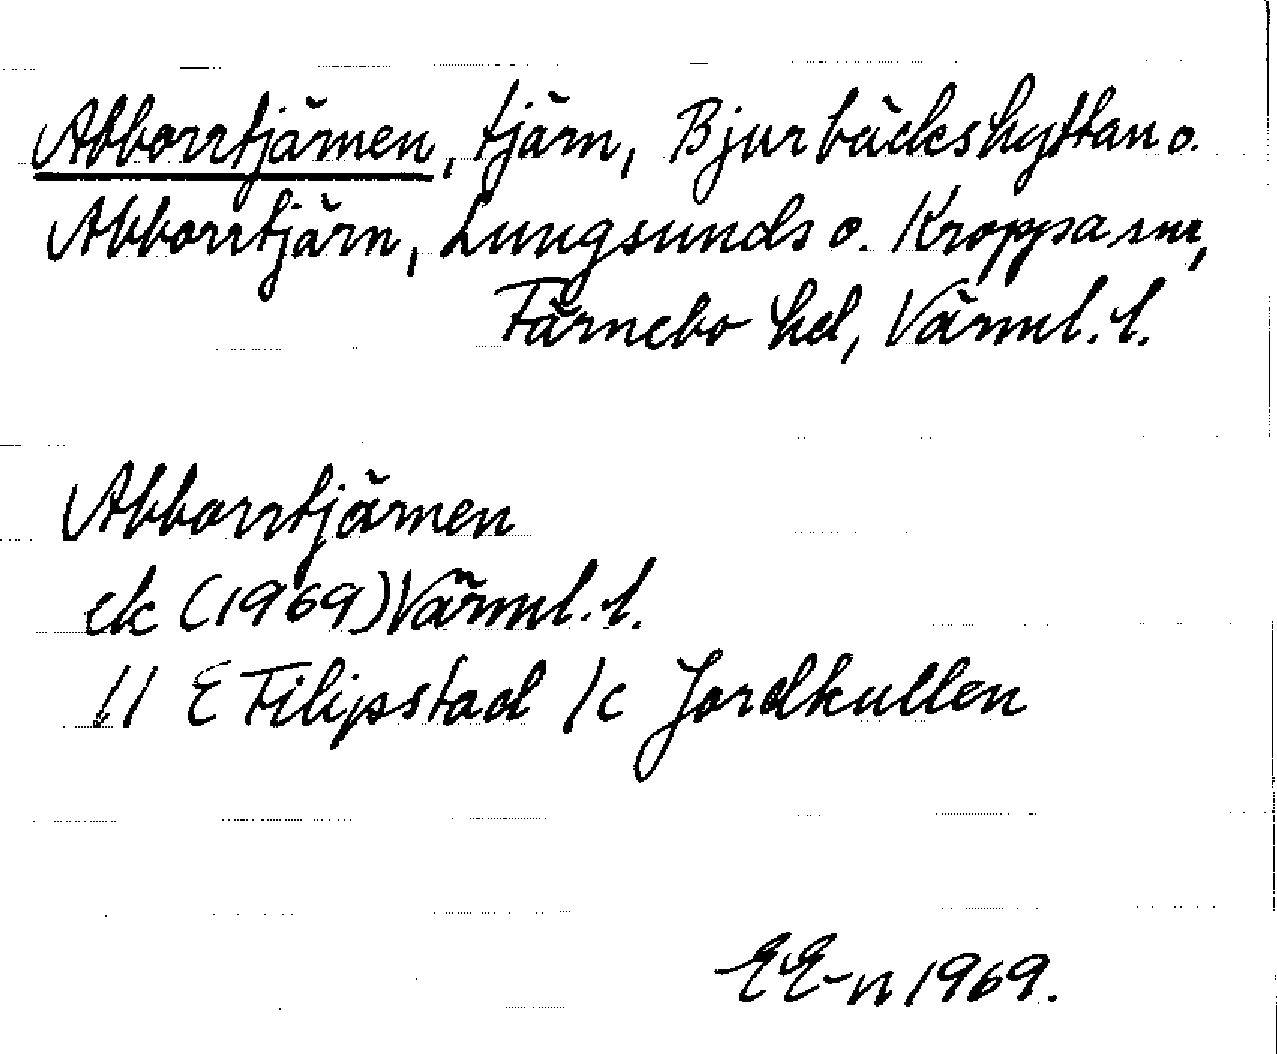 Abborrtjärnen, tjärn, Bjurbäckshyttan o.
Abborrtjärn, Lungsunds o. Kroppa snr,
Färnebo hd, Värml. l.
Abborrtjärnen
ek (1969) Värml. l.
11 E Filipstad 1c Jordkullen
EE-n 1969.